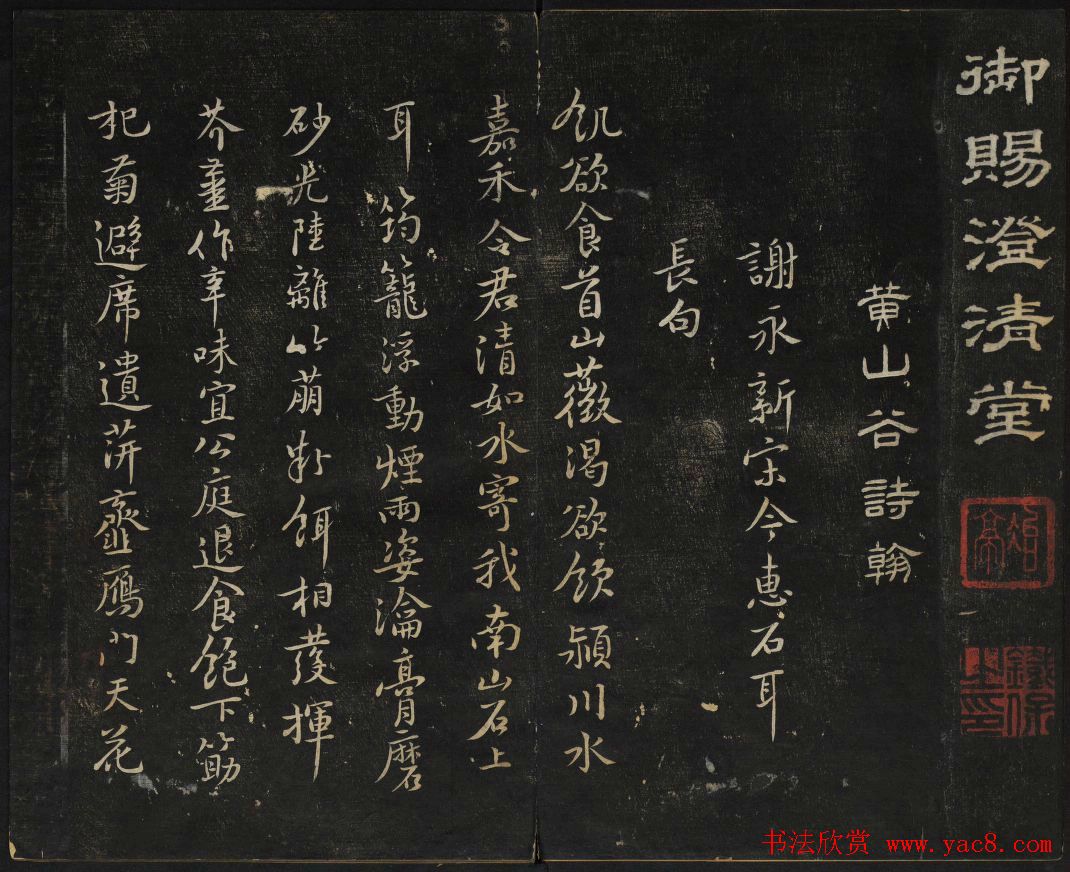 御賜澄清堂
鐵保之印
黄山谷詩翰
謝永新宋令惠石耳
長句
飢欲食首山薇渴欲飲潁川水
嘉禾令君清如水寄我南山石上
耳筠籠浮動煙雨姿瀹膏磨
砂光陸離竹萌粉餌相發揮
芥薑作辛味宜公庭退食飽下筯
杞菊避席遺荓虀鴈門天花
书法欣赏 www.yac8.com